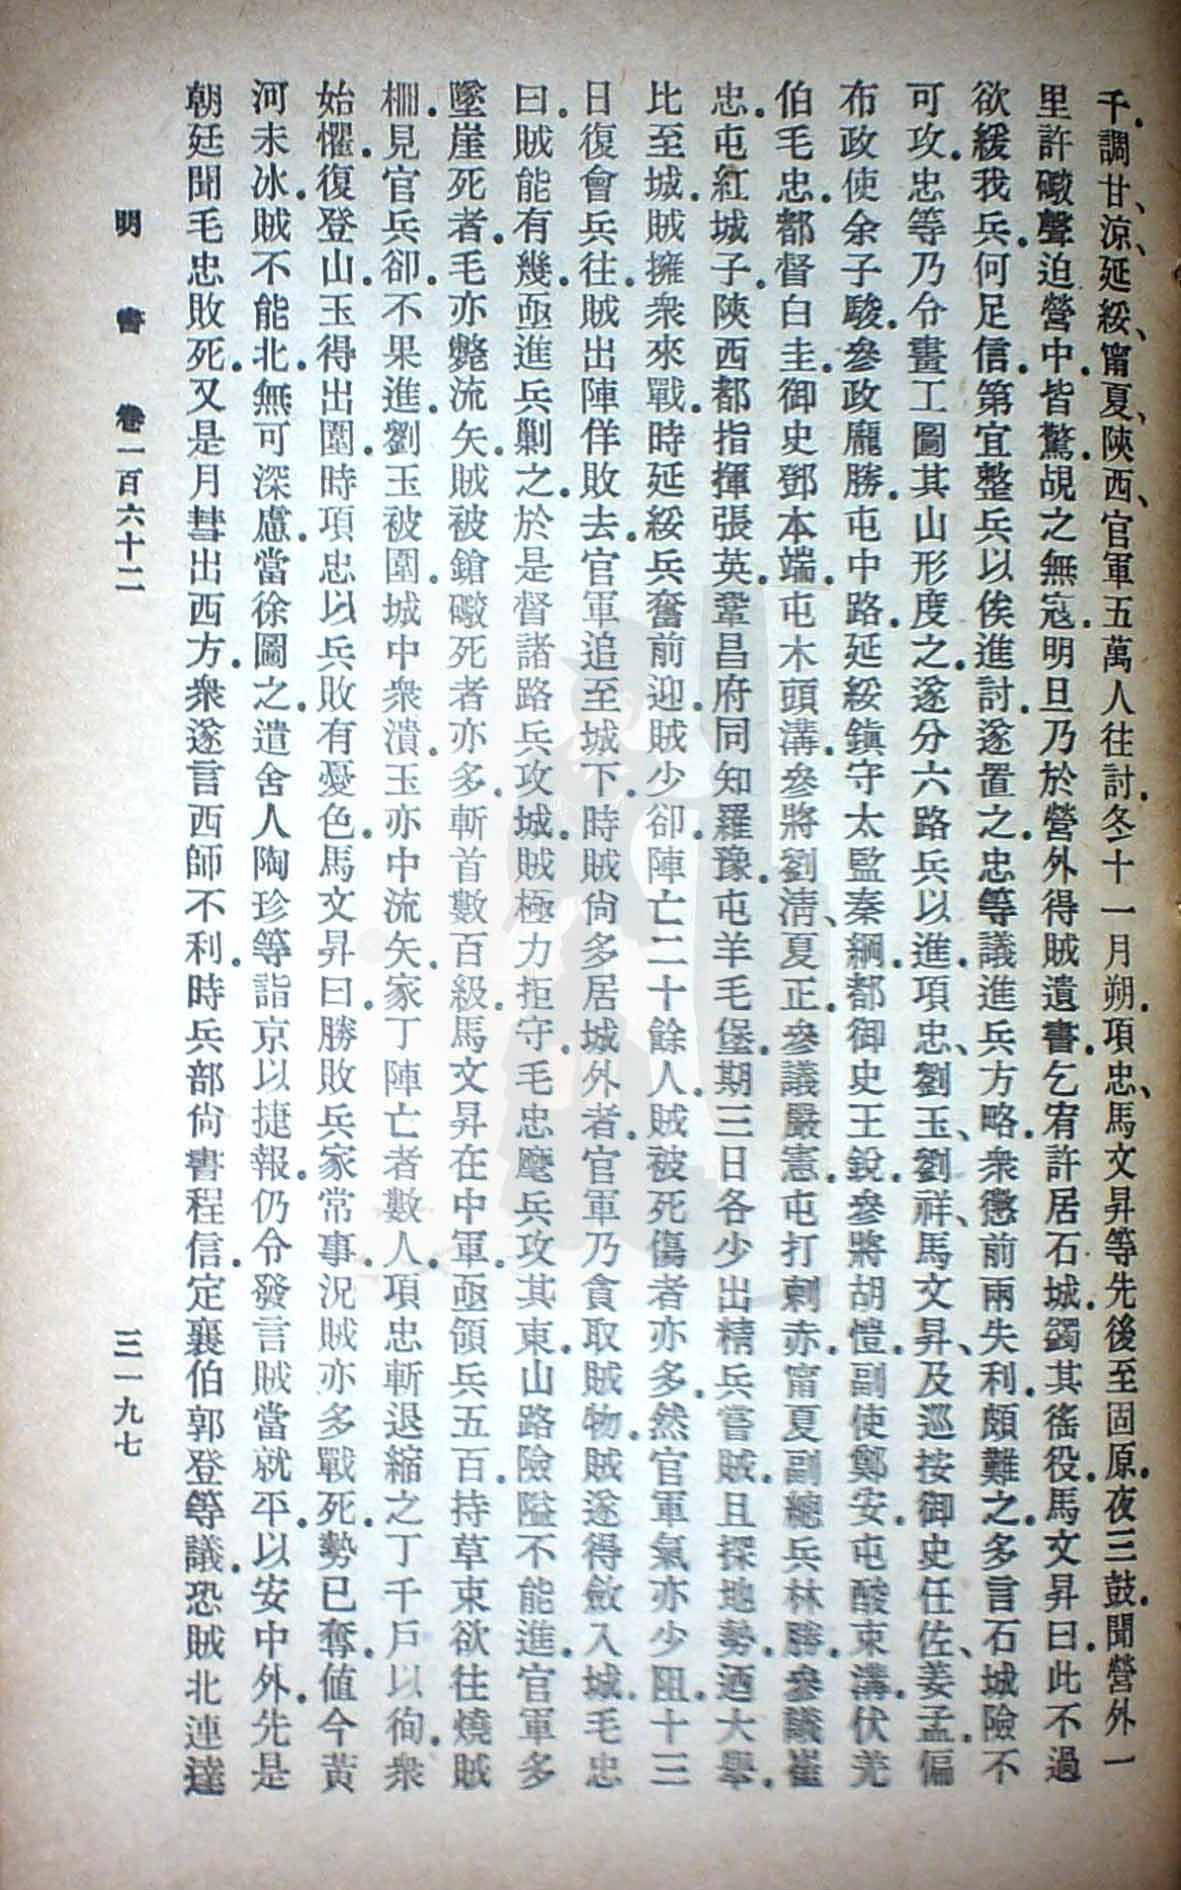 千。調甘、涼、延綏、甯夏、陝西、官軍五萬人往討。冬十一月朔。項忠、馬文昇等先後至固原。夜三鼓。聞營外一
里許礮聲迫營中。皆驚。覘之無寇。明旦乃於營外得賊遺書。乞宥許居石城。蠲其徭役。馬文昇曰。此不過
欲緩我兵。何足信。第宜整兵以俟進討。遂置之。忠等議進兵方略。衆懲前兩失利。頗難之。多言石城險不
可攻。忠等乃令畫工圖其山形度之。遂分六路兵以進。項忠、劉玉、劉祥、馬文昇、及巡按御史任佐、姜孟。偏
布政使余子駿。參政龐勝。屯中路。延綏鎮守太監秦綱。都御史王銳。參將胡愷。副使鄭安。屯酸束溝。伏羌
伯毛忠。都督白圭。御史鄧本端。屯木頭溝。參將劉清、夏正。參議嚴憲。屯打剌赤。甯夏副總兵林勝。參議崔
忠。屯紅城子。陝西都指揮張英。鞏昌府同知羅豫。屯羊毛堡。期三日各少出精兵嘗賊。且探地勢。迺大舉。
比至城。賊擁衆來戰。時延綏兵奮前迎。賊少卻。陣亡二十餘人。賊被死傷者亦多。然官軍氣亦少阻。十三
日復會兵往。賊出陣佯敗去。官軍追至城下。時賊尙多居城外者。官軍乃貪取賊物。賊遂得斂入城。毛忠
曰。賊能有幾。亟進兵剿之。於是督諸路兵攻城。賊極力拒守。毛忠麾兵攻其東。山路險隘不能進。官軍多
墜崖死者。毛亦斃流矢。賊被鎗礮死者亦多。斬首數百級。馬文昇在中軍。亟領兵五百。持草束欲往燒賊
柵。見官兵卻。不果進。劉玉被圍。城中衆潰。玉亦中流矢。家丁陣亡者數人。項忠斬退縮之丁千戶以徇。衆
始懼。復登山。玉得出圍。時項忠以兵敗有憂色。馬文昇曰。勝敗兵家常事。況賊亦多戰死。勢已奪。値今黃
河未冰。賊不能北。無可深慮。當徐圖之。遣舍人陶珍等詣京以捷報。仍令發言賊當就平。以安中外。先是
朝廷聞毛忠敗死。又是月彗出西方。衆遂言西師不利。時兵部尙書程信。定襄伯郭登等議。恐賊北連達
明書 卷一百六十二 三一九七